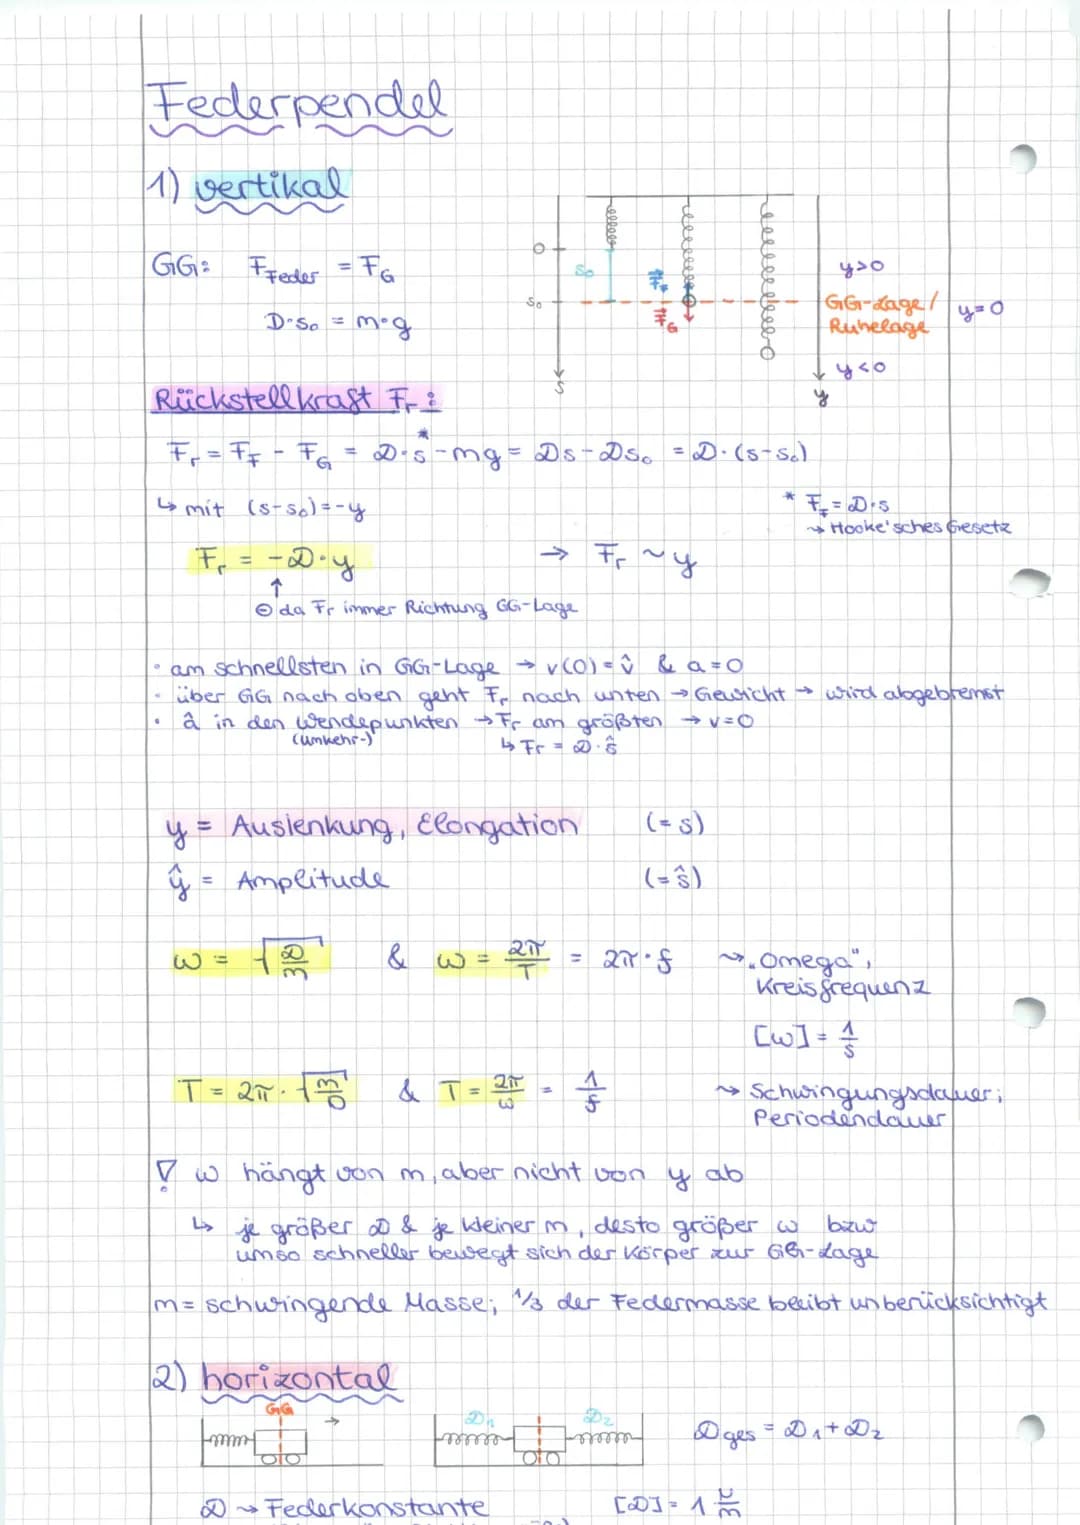 Federpendel
1) vertikal
GG: F_Feder = F_G
D·s₀ = m·g
0
s₀
s
s₀
F_F
F_G
y>0
GG-Lage/
Ruhelage
y=0
y<0
y
Rückstellkraft F_r:
F_r = F_F - F_G = D·s* - mg = Ds - Ds₀ = D·(s-s₀)
↳ mit (s-s₀) = -y
* F_F = D·s
⇝ Hooke'sches Gesetz
F_r = -D·y → F_r ~ y
↑
⊖ da Fr immer Richtung GG-Lage
• am schnellsten in GG-Lage → v(0) = v̂ & a=0
• über GG nach oben geht F_r nach unten → Gewicht → wird abgebremst
• â in den Wendepunkten → Fr am größten → v=0
(Umkehr-) ↳ Fr = D·ŝ
y = Auslenkung, Elongation (=s)
ŷ = Amplitude (=ŝ)
ω = √(D/m) & ω = 2π/T = 2π·f ⇝ „Omega",
Kreisfrequenz
[ω] = 1/s
T = 2π·√(m/D) & T = 2π/ω = 1/f ⇝ Schwingungsdauer;
Periodendauer
∇ ω hängt von m, aber nicht von y ab
↳ je größer D & je kleiner m, desto größer ω bzw
umso schneller bewegt sich der Körper zur GG-Lage
m = schwingende Masse; 1/3 der Federmasse bleibt unberücksichtigt
2) horizontal
GG
D₁ D₂
D_ges = D₁ + D₂
D ⇝ Federkonstante [D] = 1 N/m